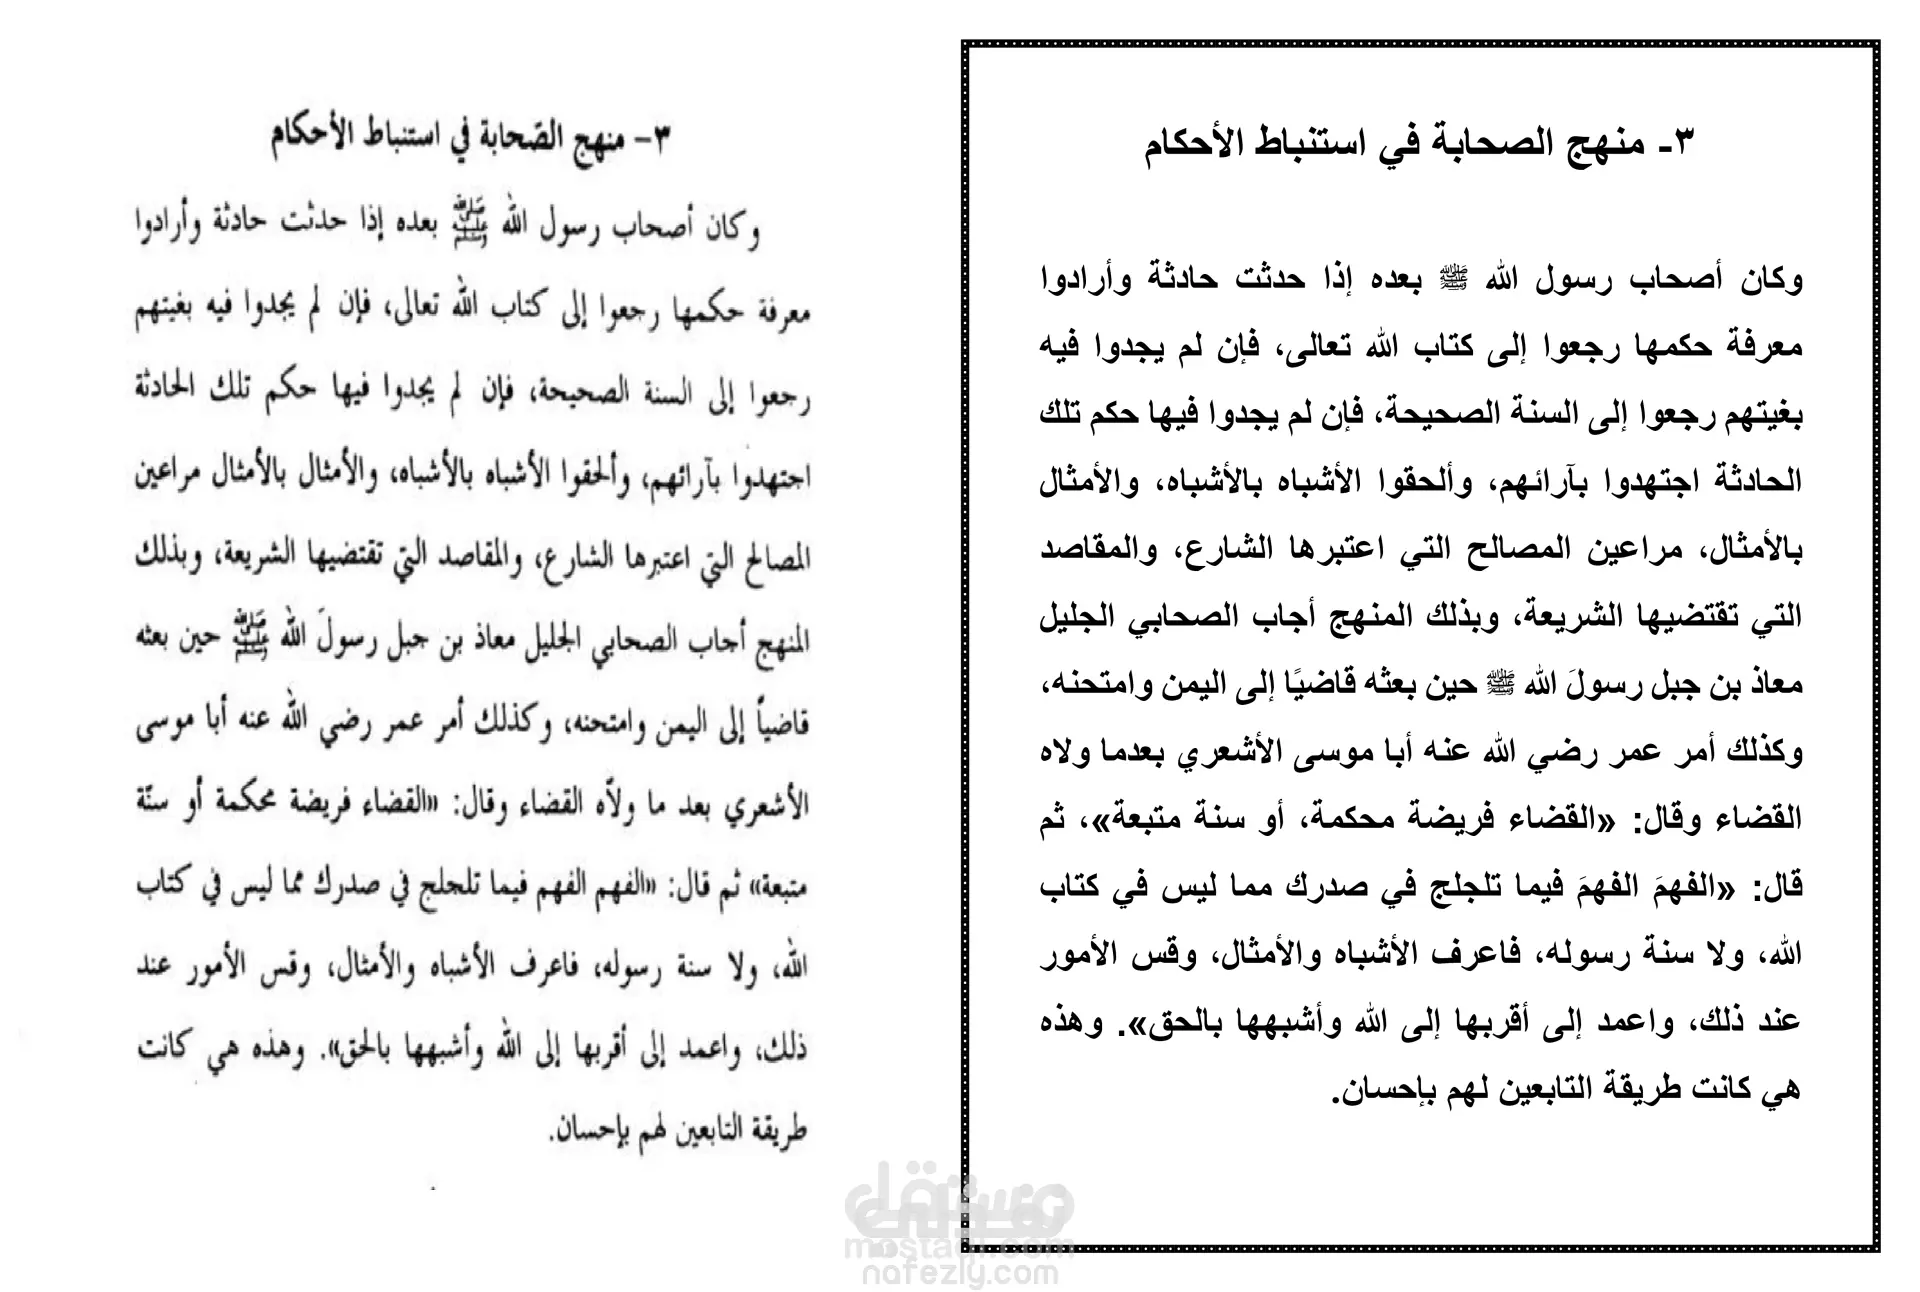 ٣- منهج الصحابة في استنباط الأحكام
وكان أصحاب رسول الله ﷺ بعده إذا حدثت حادثة وأرادوا
معرفة حكمها رجعوا إلى كتاب الله تعالى، فإن لم يجدوا فيه
بغيتهم رجعوا إلى السنة الصحيحة، فإن لم يجدوا فيها حكم تلك
الحادثة اجتهدوا بآرائهم، وألحقوا الأشباه بالأشباه، والأمثال
بالأمثال، مراعين المصالح التي اعتبرها الشارع، والمقاصد
التي تقتضيها الشريعة، وبذلك المنهج أجاب الصحابي الجليل
معاذ بن جبل رسولَ الله ﷺ حين بعثه قاضيًا إلى اليمن وامتحنه،
وكذلك أمر عمر رضي الله عنه أبا موسى الأشعري بعدما ولاه
القضاء وقال: «القضاء فريضة محكمة، أو سنة متبعة»، ثم
قال: «الفهمَ الفهمَ فيما تلجلج في صدرك مما ليس في كتاب
الله، ولا سنة رسوله، فاعرف الأشباه والأمثال، وقس الأمور
عند ذلك، واعمد إلى أقربها إلى الله وأشبهها بالحق». وهذه
هي كانت طريقة التابعين لهم بإحسان.
٣- منهج الصّحابة في استنباط الأحكام
وكان أصحاب رسول الله ﷺ بعده إذا حدثت حادثة وأرادوا
معرفة حكمها رجعوا إلى كتاب الله تعالى، فإن لم يجدوا فيه بغيتهم
رجعوا إلى السنة الصحيحة، فإن لم يجدوا فيها حكم تلك الحادثة
اجتهدوا بآرائهم، وألحقوا الأشباه بالأشباه، والأمثال بالأمثال مراعين
المصالح التي اعتبرها الشارع، والمقاصد التي تقتضيها الشريعة، وبذلك
المنهج أجاب الصحابي الجليل معاذ بن جبل رسولَ الله ﷺ حين بعثه
قاضياً إلى اليمن وامتحنه، وكذلك أمر عمر رضي الله عنه أبا موسى
الأشعري بعد ما ولاّه القضاء وقال: «القضاء فريضة محكمة أو سنّة
متبعة» ثم قال: «الفهم الفهم فيما تلجلج في صدرك مما ليس في كتاب
الله، ولا سنة رسوله، فاعرف الأشباه والأمثال، وقس الأمور عند
ذلك، واعمد إلى أقربها إلى الله وأشبهها بالحق». وهذه هي كانت
طريقة التابعين لهم بإحسان.
مستقل
mostaql.com
nafezly.com